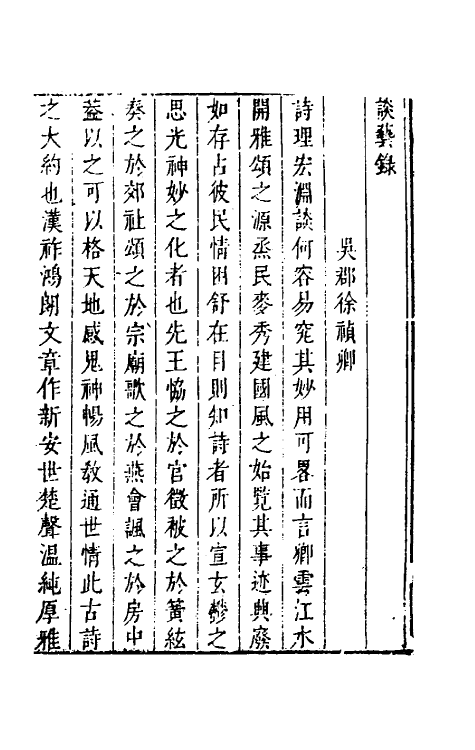 談藝錄
吳郡徐禎卿
詩理宏淵談何容易究其妙用可畧而言卿雲江水
開雅頌之源烝民麥秀建國風之始覽其事迹興廢
如存占彼民情困舒在目則知詩者所以宣玄鬱之
思光神妙之化者也先王協之於宮徵被之於簧絃
奏之於郊社頌之於宗廟歌之於燕會諷之於房中
葢以之可以格天地感鬼神暢風教通世情此古詩
之大約也漢祚鴻朗文章作新安世楚聲溫純厚雅